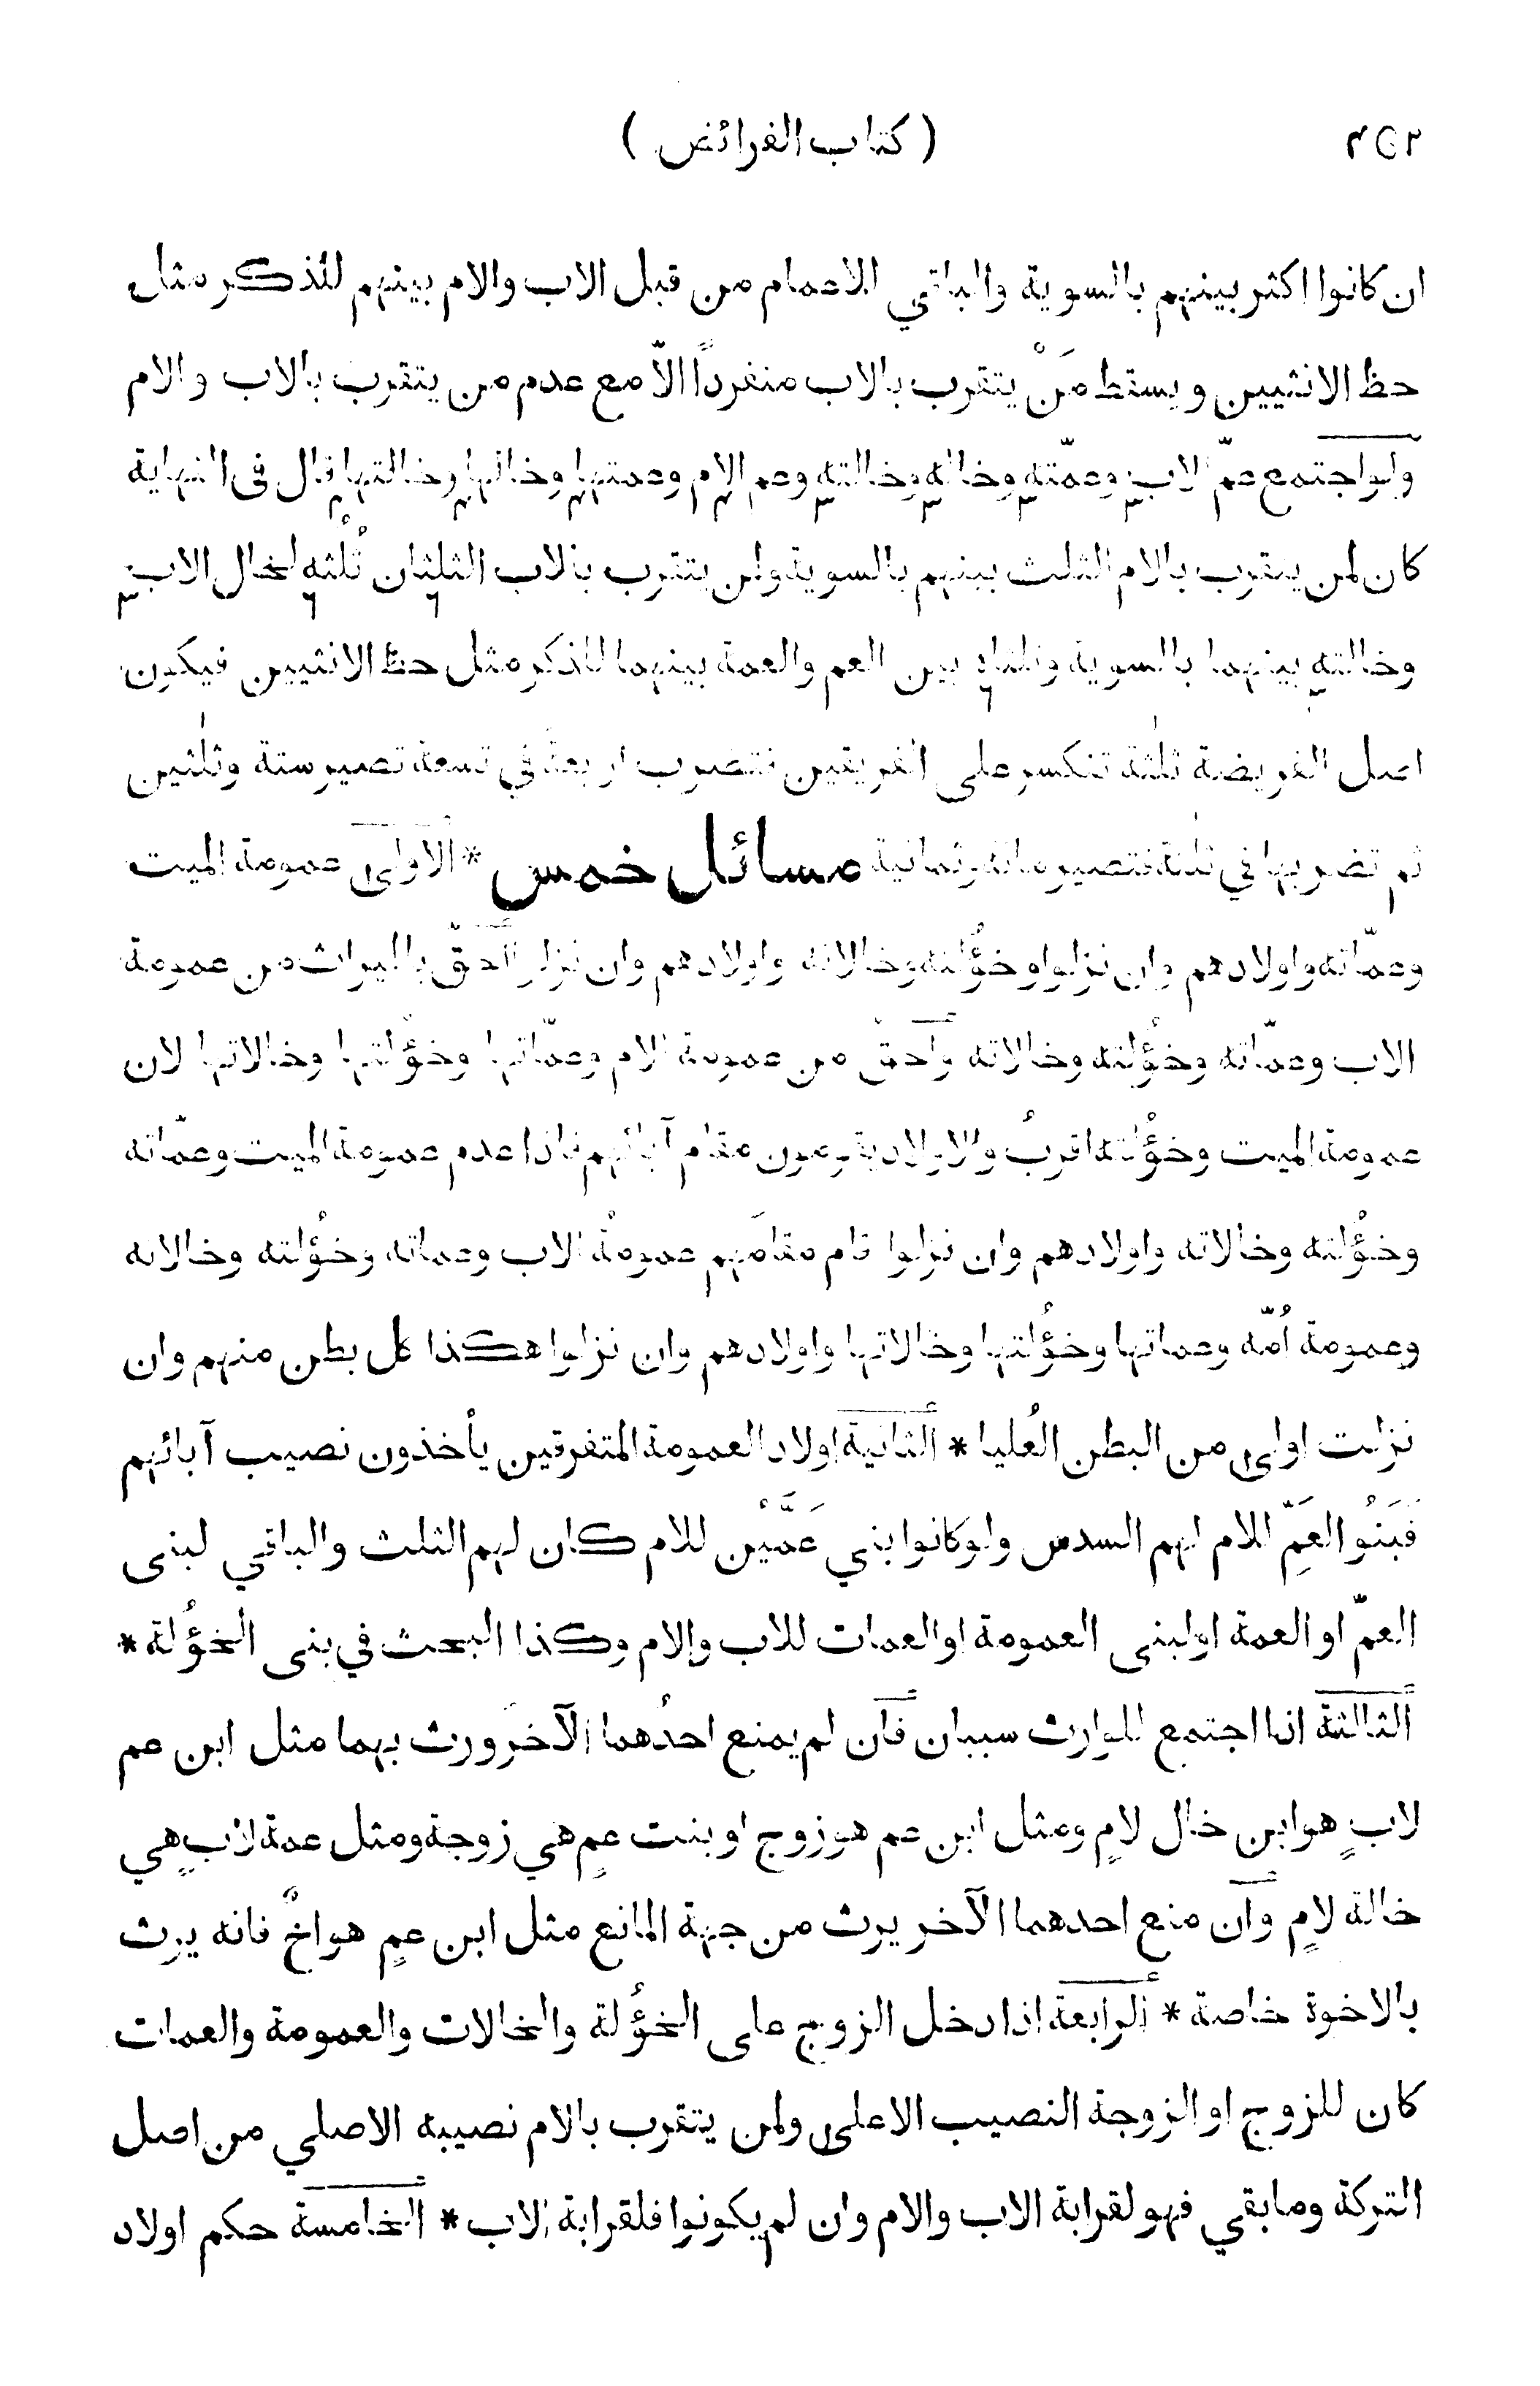 ٤٥٢ ( كتاب الفرائض )
ان كانوا اكثر بينهم بالسوية والباقي للاعمام من قبل الاب والام بينهم للذكر مثل
حظ الانثيين ويسقط مَنْ يتقرب بالاب منفرداً الاّ مع عدم من يتقرب بالاب والام
ولو اجتمع عمّ الاب وعمّته وخاله وخالته وعم الام وعمتها وخالها وخالتها قال فى النهاية
كان لمن يتقرب بالام الثلث بينهم بالسوية ولمن يتقرب بالاب الثلثان ثُلُثه لخال الاب
وخالته بينهما بالسوية وثلثاه بين العم والعمة بينهما للذكر مثل حظ الانثيين فيكون
اصل الفريضة ثلٰثة تنكسر على الفريقين فتضرب اربعة في تسعة تصير ستة وثلٰثين
ثم تضربها في ثلٰثة فتصير مائة وثمانية مسائل خمس * الاولى عمومة الميت
وعمّاته واولادهم وان نزلوا وخؤُلته وخالاته واولادهم وان نزلوا احقّ بالميراث من عمومة
الاب وعمّاته وخؤُلته وخالاته واحق من عمومة الام وعمّاتها وخؤُلتها وخالاتها لان
عمومة الميت وخؤُلته اقربُ والاولاد يقومون مقام آبائهم فاذا عدم عمومة الميت وعمّاته
وخؤُلته وخالاته واولادهم وان نزلوا قام مقامَهم عمومةُ الاب وعماته وخؤُلته وخالاته
وعمومة اُمّه وعماتها وخؤُلتها وخالاتها واولادهم وان نزلوا هكذا كل بطن منهم وان
نزلت اولى من البطن العُليا * الثانية اولاد العمومة المتفرقين يأخذون نصيب آبائهم
فَبَنُو العَمِّ للام لهم السدس ولو كانوا بني عَمَّيْن للام كان لهم الثلث والباقي لبنى
العمّ او العمة او لبنى العمومة او العمات للاب والام وكذا البحث في بنى الخؤُلة *
الثالثة اذا اجتمع للوارث سببان فان لم يمنع احدُهما الآخرَ ورث بهما مثل ابن عم
لابٍ هو ابن خال لامٍ ومثل ابن عم هو زوج او بنت عمٍ هي زوجة ومثل عمة لابٍ هي
خالة لامٍ وان منع احدهما الآخر يرث من جهة المانع مثل ابن عمٍ هو اخٌ فانه يرث
بالاخوة خاصة * الرابعة اذا دخل الزوج على الخؤُلة والخالات والعمومة والعمات
كان للزوج او الزوجة النصيب الاعلى ولمن يتقرب بالام نصيبه الاصلي من اصل
التركة وما بقي فهو لقرابة الاب والام وان لم يكونوا فلقرابة الاب * الخامسة حكم اولاد